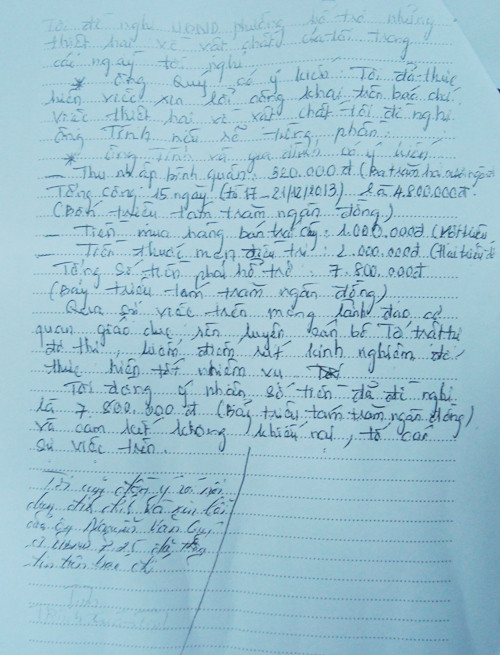 Tôi đề nghị UBND phường bồ trợ những
thiệt hại về vật chất của tôi trong
các ngày tôi nghỉ
* Ông Quý có ý kiến: Tôi đã thực
hiện việc xin lỗi công khai trên báo chí
việc thiệt hại về vật chất tôi đề nghị
ông Tính nêu rõ từng phần.
* Ông Tính và gia đình có ý kiến
- Thu nhập bình quân: 320.000đ (Ba trăm hai mươi ngàn đ
Tổng cộng 15 ngày (từ 17 - 21/12/2013) là 4.800.000đ
(Bốn triệu tám trăm ngàn đồng)
- Tiền mua hàng bán trái cây: 1.000.000đ (Một triệu
- Tiền thuốc men điều trị: 2.000.000đ (Hai triệu đ
Tổng số tiền phải hỗ trợ: 7.800.000đ
(Bảy triệu tám trăm ngàn đồng)
Qua sự việc trên mong lãnh đạo cơ
quan giáo dục, rèn luyện cán bộ Tổ trật tự
đô thị, kiểm điểm rút kinh nghiệm để
thực hiện tốt nhiệm vụ
Tôi đồng ý nhận số tiền đã đề nghị
là 7.800.000đ (Bảy triệu tám trăm ngàn đồng)
và cam kết không khiếu nại, tố cáo
sự việc trên.
Tôi cũng đồng ý với nội
dung và xin lỗi
của ông Nguyễn Văn Quý
UBND đã đăng
tin trên báo chí